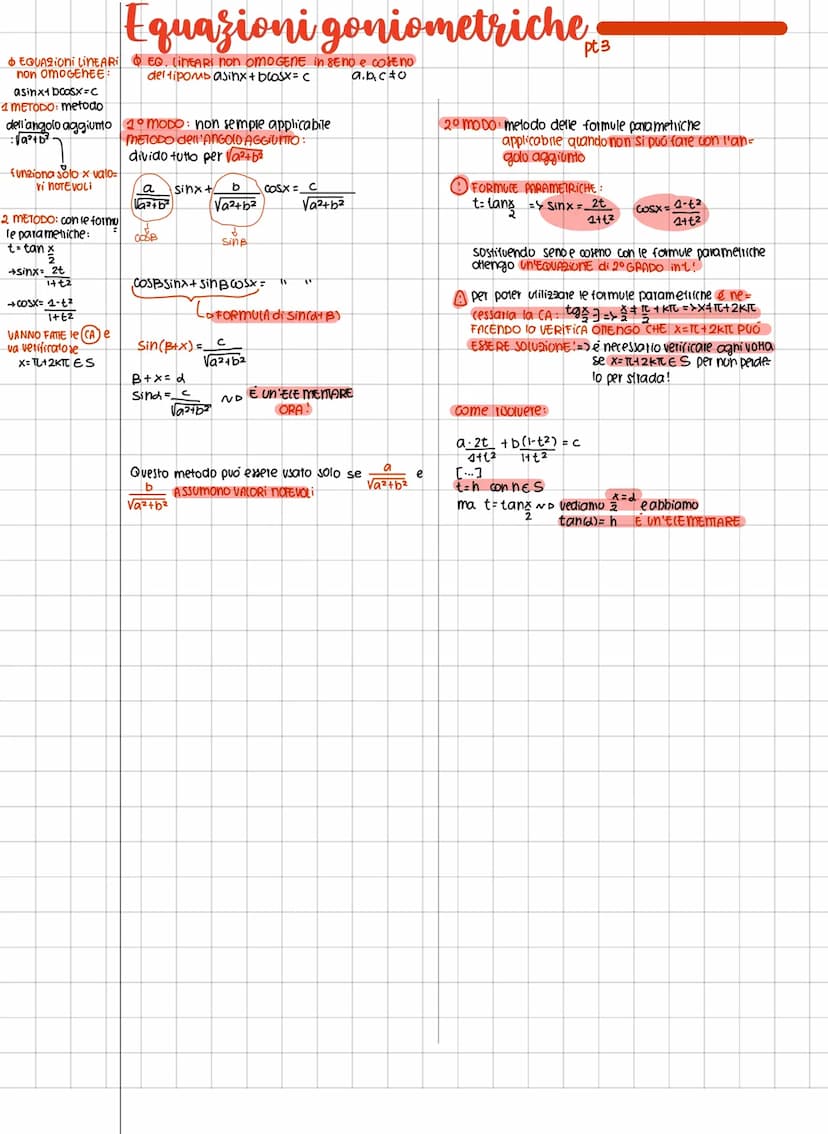 Equazioni goniometriche
pt3
ϕ EQUAZIONI LINEARI
non OMOGENEE:
asinx+bcosx=c
1 METODO: metodo
dell'angolo aggiunto
:√a²+b²
funziona solo x valo=
ri NOTEVOLI
2 METODO: con le formu
le parametriche:
t=tan x/2
→sinx= 2t/1+t²
→cosx= 1-t²/1+t²
VANNO FATTE le CA e
va verificato se
x=π+2kπ ∈ S
ϕ EQ. LINEARI non OMOGENE in SENO e COSENO
del tipo ~> asinx+bcosx=c a,b,c ≠0
1º MODO: non sempre applicabile
METODO dell'ANGOLO AGGIUNTO:
divido tutto per √a²+b²
a/√a²+b² sinx+ b/√a²+b² cosx= c/√a²+b²
cosβ sinβ
cosβsinx+sinβcosx= " "
↳ FORMULA di sin(α+β)
sin(β+x)= c/√a²+b²
β+x=α
sinα= c/√a²+b² ~> È UN'ELEMENTARE
ORA!
Questo metodo può essere usato solo se a/√a²+b² e
b/√a²+b² ASSUMONO VALORI NOTEVOLI
2º MODO: metodo delle formule parametriche
applicabile quando non si può fare con l'an=
golo aggiunto
! FORMULE PARAMETRICHE:
t=tan x/2 => sinx= 2t/1+t² cosx= 1-t²/1+t²
sostituendo seno e coseno con le formule parametriche
ottengo UN'EQUAZIONE di 2º GRADO in t!
⚠ per poter utilizzare le formule parametriche è ne=
cessaria la CA: tg x/2 ∃ => x/2 ≠ π/2 + kπ => x≠π+2kπ
FACENDO la VERIFICA OTTENGO CHE x=π+2kπ PUÒ
ESSERE SOLUZIONE! => è necessario verificare ogni volta
se x=π+2kπ ∈ S per non perde=
lo per strada!
come risolvere:
a·2t/1+t² + b(1-t²)/1+t² = c
[...]
t=h con h∈S
ma t=tan x/2 ~> vediamo x/2=α e abbiamo
tan(α)= h È UN'ELEMENTARE